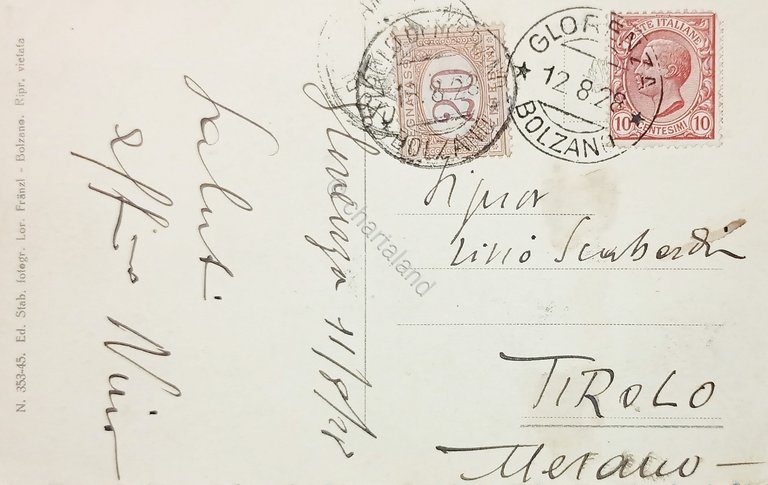 N. 353-45. Ed. Stab. fotogr. Lor. Fränzl - Bolzano. Ripr. vietata
Glorenza 11/8/28
Saluti
Nino
20
BOLZANO
GLORENZA
12.8.28
BOLZANO
POSTE ITALIANE
10 CENTESIMI 10
Signor
Livio
TIROLO
Merano
chartaland